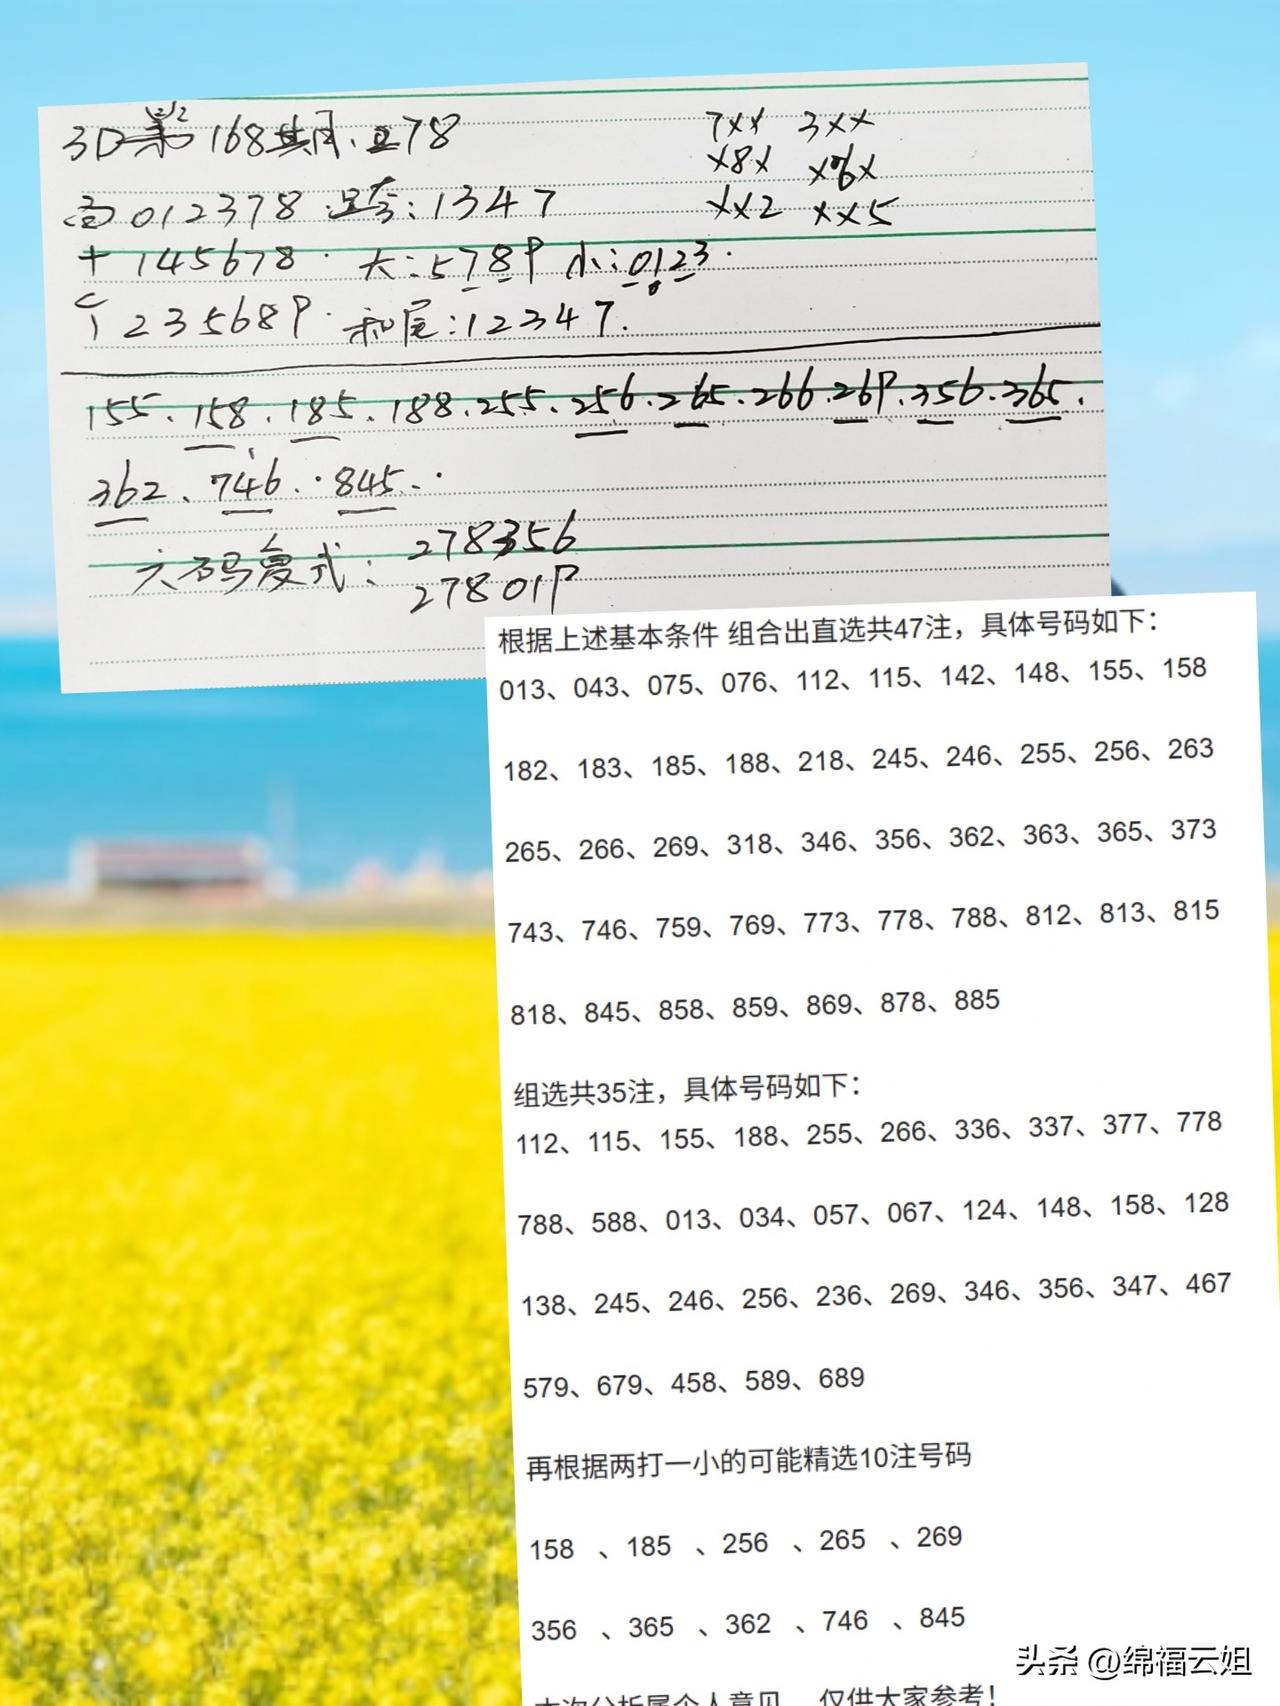 3D第168期. 278
7XX 3XX
X8X X6X
XX2 XX5
百012378 跨:1347
十145678 大:5789 小:0123.
个235689 和尾:12347.
155.158.185.188.255.256.265.266.269.356.365.
362、746.845.
六码复式: 278356
278019
根据上述基本条件 组合出直选共47注，具体号码如下：
013、043、075、076、112、115、142、148、155、158
182、183、185、188、218、245、246、255、256、263
265、266、269、318、346、356、362、363、365、373
743、746、759、769、773、778、788、812、813、815
818、845、858、859、869、878、885
组选共35注，具体号码如下：
112、115、155、188、255、266、336、337、377、778
788、588、013、034、057、067、124、148、158、128
138、245、246、256、236、269、346、356、347、467
579、679、458、589、689
再根据两打一小的可能精选10注号码
158 、185 、256 、265 、269
356 、365 、362 、746 、845
本次分析属个人意见 仅供大家参考！
头条 @绵福云姐